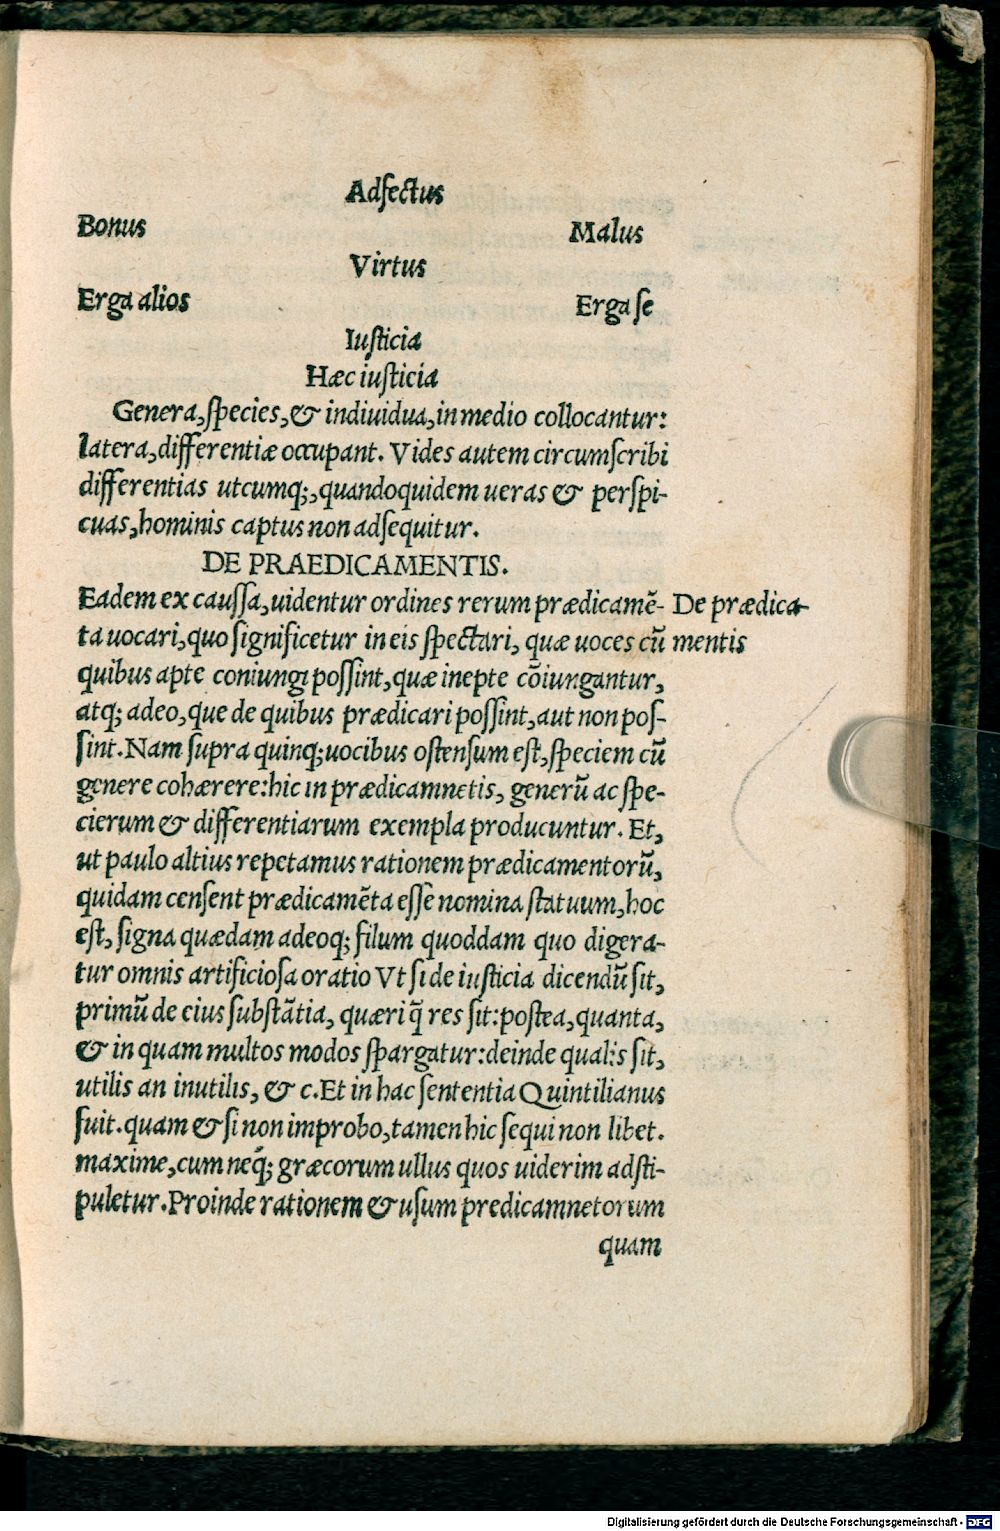 Adfectus
Bonus Malus
Virtus
Erga alios Erga se
Iusticia
Hæc iusticia
Genera, species, & indiuidua, in medio collocantur:
latera, differentiæ occupant. Vides autem circumscribi
differentias utcumq;, quandoquidem ueras & perspi-
cuas, hominis captus non adsequitur.
DE PRAEDICAMENTIS.
Eadem ex caussa, uidentur ordines rerum prædicamē-
ta uocari, quo significetur in eis spectari, quæ uoces cū
De prædica-
mentis
quibus apte coniungi possint, quæ inepte cōiungantur,
atq; adeo, que de quibus prædicari possint, aut non pos-
sint. Nam supra quinq; uocibus ostensum est, speciem cū
genere cohærere: hic in prædicamnetis, generū ac spe-
cierum & differentiarum exempla producuntur. Et,
ut paulo altius repetamus rationem prædicamentorū,
quidam censent prædicamēta esse nomina statuum, hoc
est, signa quædam adeoq; filum quoddam quo digera-
tur omnis artificiosa oratio Vt si de iusticia dicendū sit,
primū de eius substātia, quæri q̄ res sit: postea, quanta,
& in quam multos modos spargatur: deinde qualis sit,
utilis an inutilis, & c. Et in hac sententia Quintilianus
fuit. quam & si non improbo, tamen hic sequi non libet.
maxime, cum neq́; græcorum ullus quos uiderim adsti-
puletur. Proinde rationem & usum predicamnetorum
quam
Digitalisierung gefördert durch die Deutsche Forschungsgemeinschaft - DFG